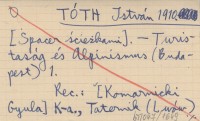 TÓTH István 1910.
[Spacer ścieżkami]. – Turis-
taság és Alpinismus (Buda-
pest) 1.
Rec.: [Komarnicki
Gyula] K-a., Taternik (Lwów)